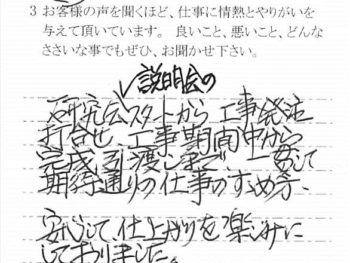 3 お客様の声を聞くほど、仕事に情熱とやりがいを
与えて頂いています。良いこと、悪いこと、どんな
ささいな事でもぜひ、お聞かせ下さい。
説明会の
研究会スタートから工事発注
打合せ、工事期間中から
完成引渡しまで、一貫して
期待通りの仕事のすすめ方、
安心して、仕上がりを楽しみに
しておりました。